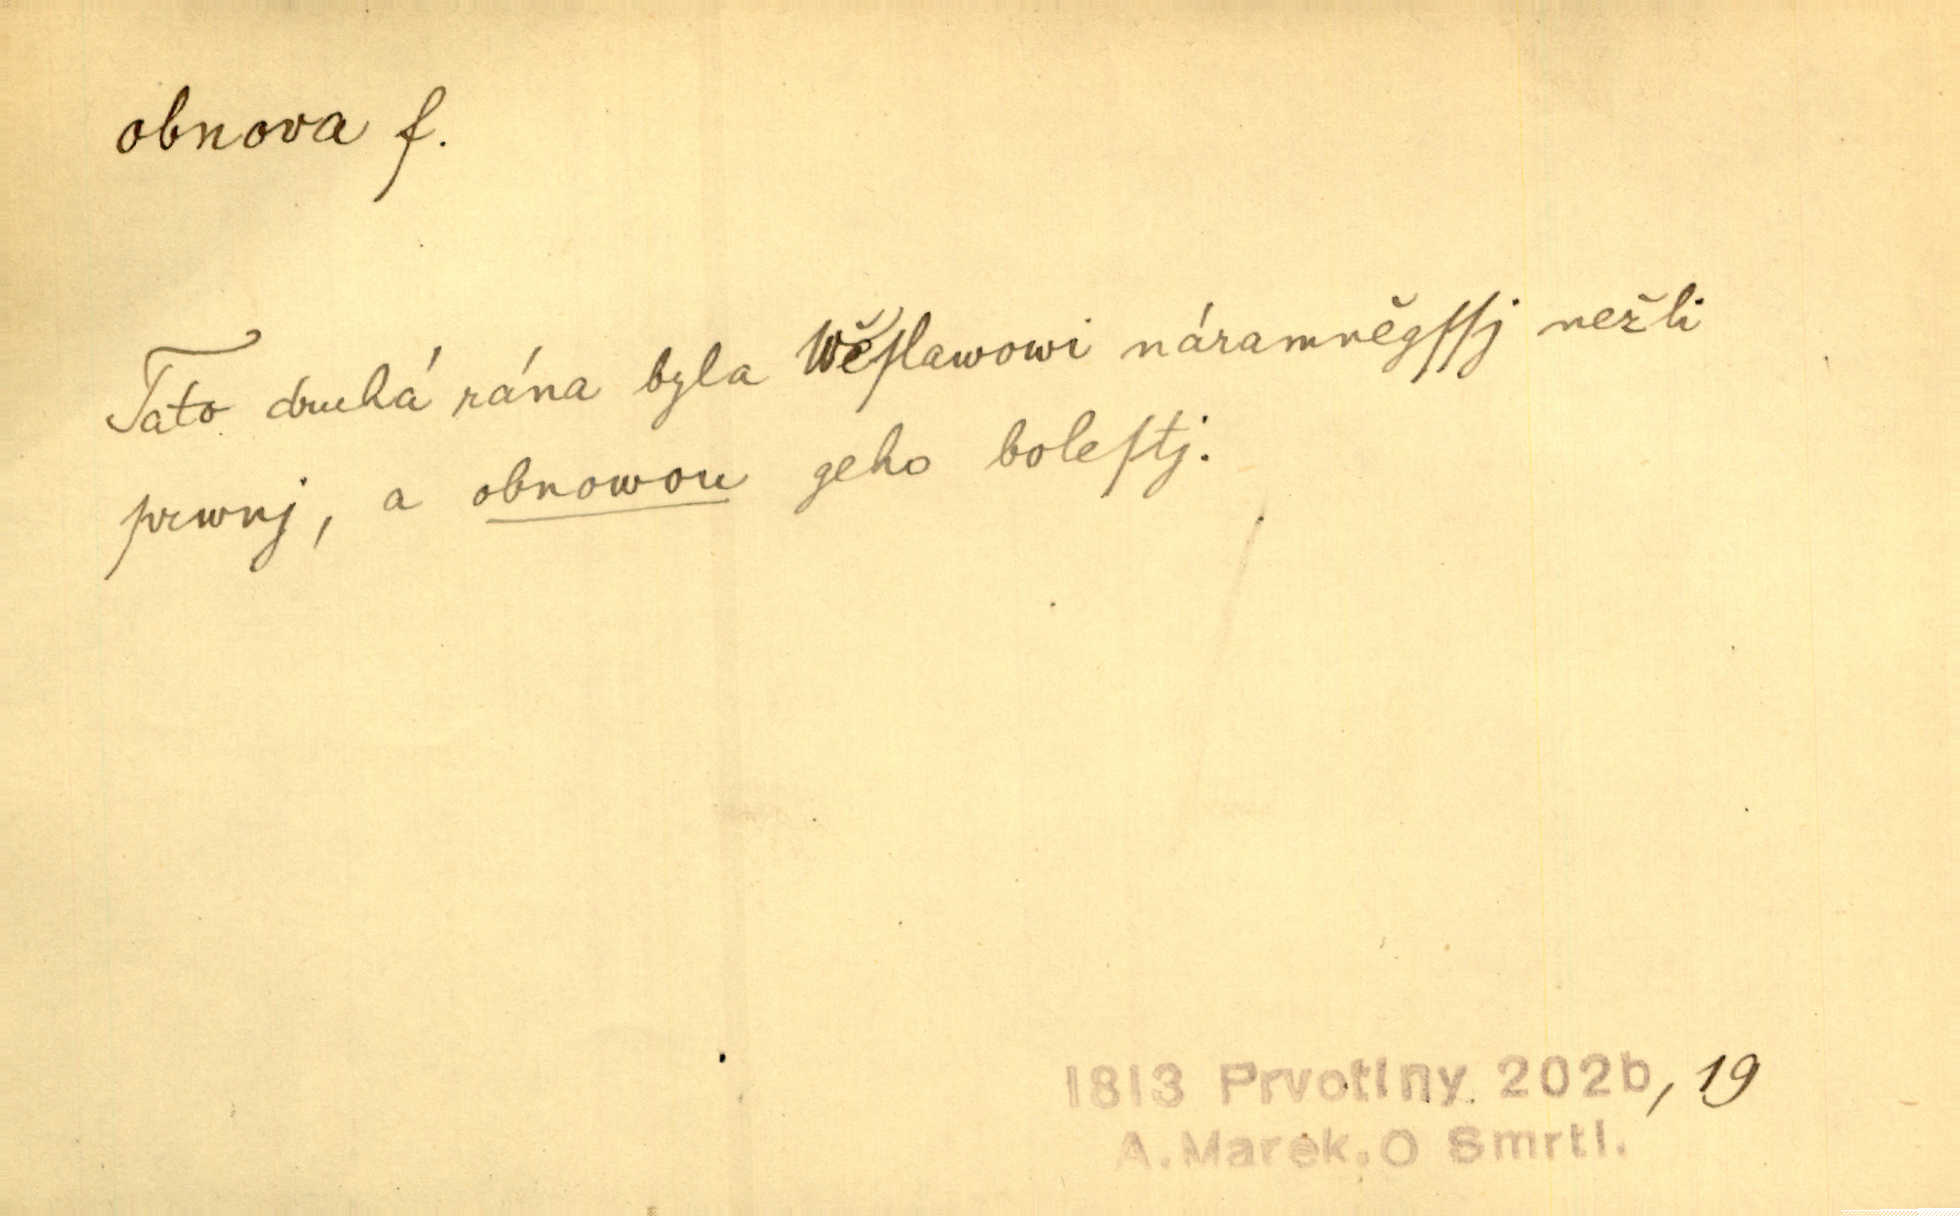 obnova f.
Tato druhá rána byla Wěſlawowi náramněgſſj nežli
prwnj, a obnowou geho boleſtj.
1813 Prvotiny 202b, 19
A. Marek. O Smrti.